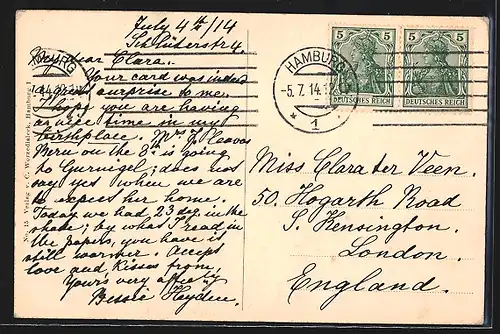 July 4th/14
Schlüterstr 4.
My dear Clara.
Your card was indeed
a great surprise to me.
I hope you are having
a nice time in my
birthplace. Mrs J.
Bern on the 8th is going
to Gurnigel; does not
say yet when we are
to expect her home.
Today we had 23 deg. in the
shade; by what I read in
the papers, you have it
still warmer. Accept
love and kisses from
Yours very aff'ly
Bessie Heyden.
HAMBURG
-5.7.14.
* 1
5 5
DEUTSCHES REICH
5 5
DEUTSCHES REICH
Miss Clara ter Veen.
50. Hogarth Road
S. Kensington.
London.
England.
No. 15 Verlag v. C. Worzedialeck, Hamburg 1